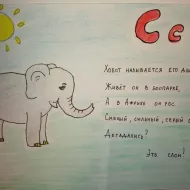 С с
Хобот называется его
Живёт он в зоопарке,
А в Африке он рос.
Смелый, сильный, серый
Догадались?
Это слон!